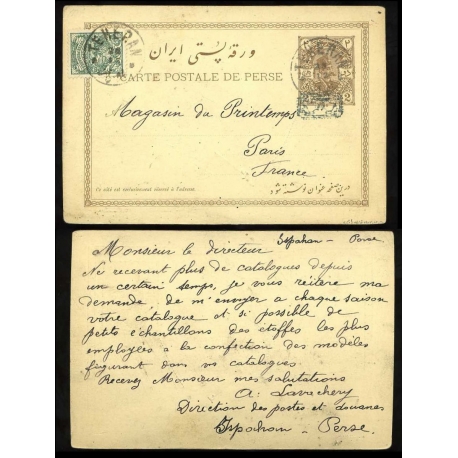 TEHERAN
ورقه پستی ایران
CARTE POSTALE DE PERSE
Magasin du Printemps
Paris
France
Ce côté est exclusivement réservé à l'adresse.
درین صفحه عنوان نوشته شود
Ispahan - Perse
Monsieur le directeur
Ne recevant plus de catalogues depuis
un certain temps, je vous réitère ma
demande de m'envoyer à chaque saison
votre catalogue et si possible de
petits échantillons des étoffes les plus
employées à la confection des modèles
figurant dans vos catalogues.
Recevez Monsieur mes salutations
A. Lavachery
Direction des postes et douanes
Ispahan - Perse.